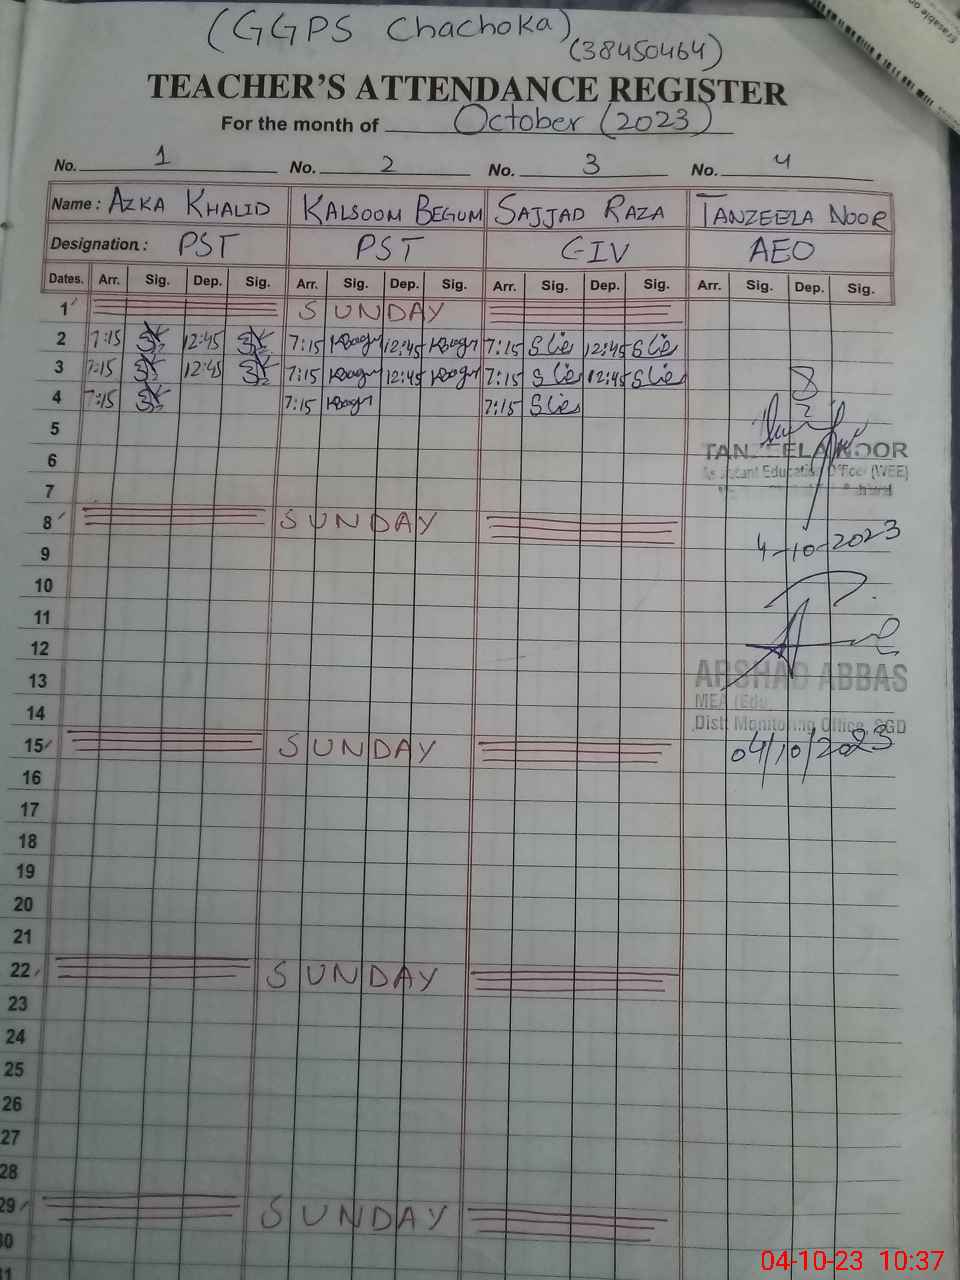 (GGPS Chachoka)
(38450464)
TEACHER'S ATTENDANCE REGISTER
For the month of October (2023)
No. 1 No. 2 No. 3 No. 4
Name : AZKA KHALID KALSOOM BEGUM SAJJAD RAZA TANZEELA NOOR
Designation : PST PST C-IV AEO
Dates. Arr. Sig. Dep. Sig. Arr. Sig. Dep. Sig. Arr. Sig. Dep. Sig. Arr. Sig. Dep. Sig.
1 SUNDAY
2 7:15 12:45 7:15 12:45 7:15 12:45
3 7:15 12:45 7:15 12:45 7:15 12:45
4 7:15 7:15 7:15
5
TANZEELA NOOR
6
Assistant Education Officer (WEE)
7
8 SUNDAY
4-10-2023
9
10
11
12
ARSHAD ABBAS
13
MEA (Edu.
14
Distt Monitoring Office, SGD
15 SUNDAY
04/10/2023
16
17
18
19
20
21
22 SUNDAY
23
24
25
26
27
28
29 SUNDAY
30
31
04-10-23 10:37